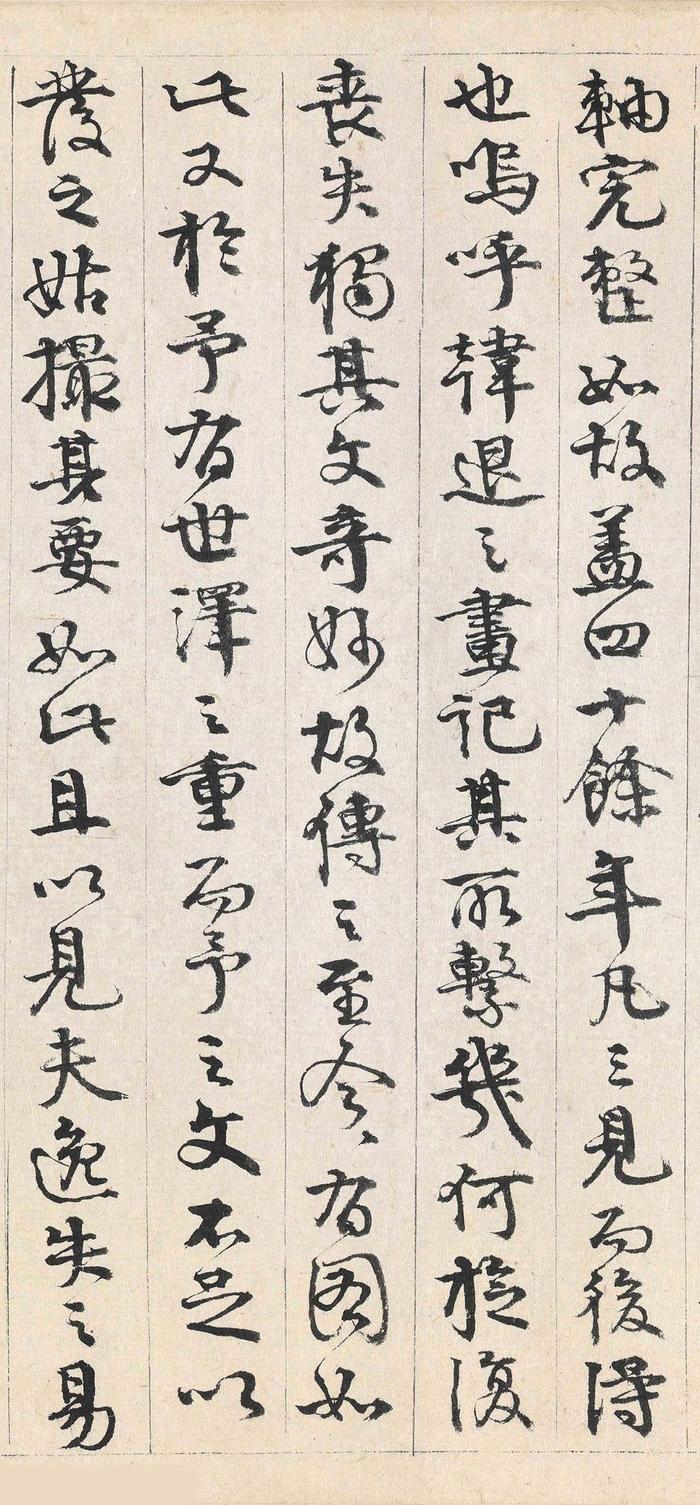 軸完整如故蓋四十餘年凡三見而後得
也嗚呼韓退之畫記其所繫幾何旋復
喪失獨其文奇妙故傳之至今〻有圖如
此又於予有世澤之重而予之文不足以
發之姑撮其要如此且以見夫逸失之易